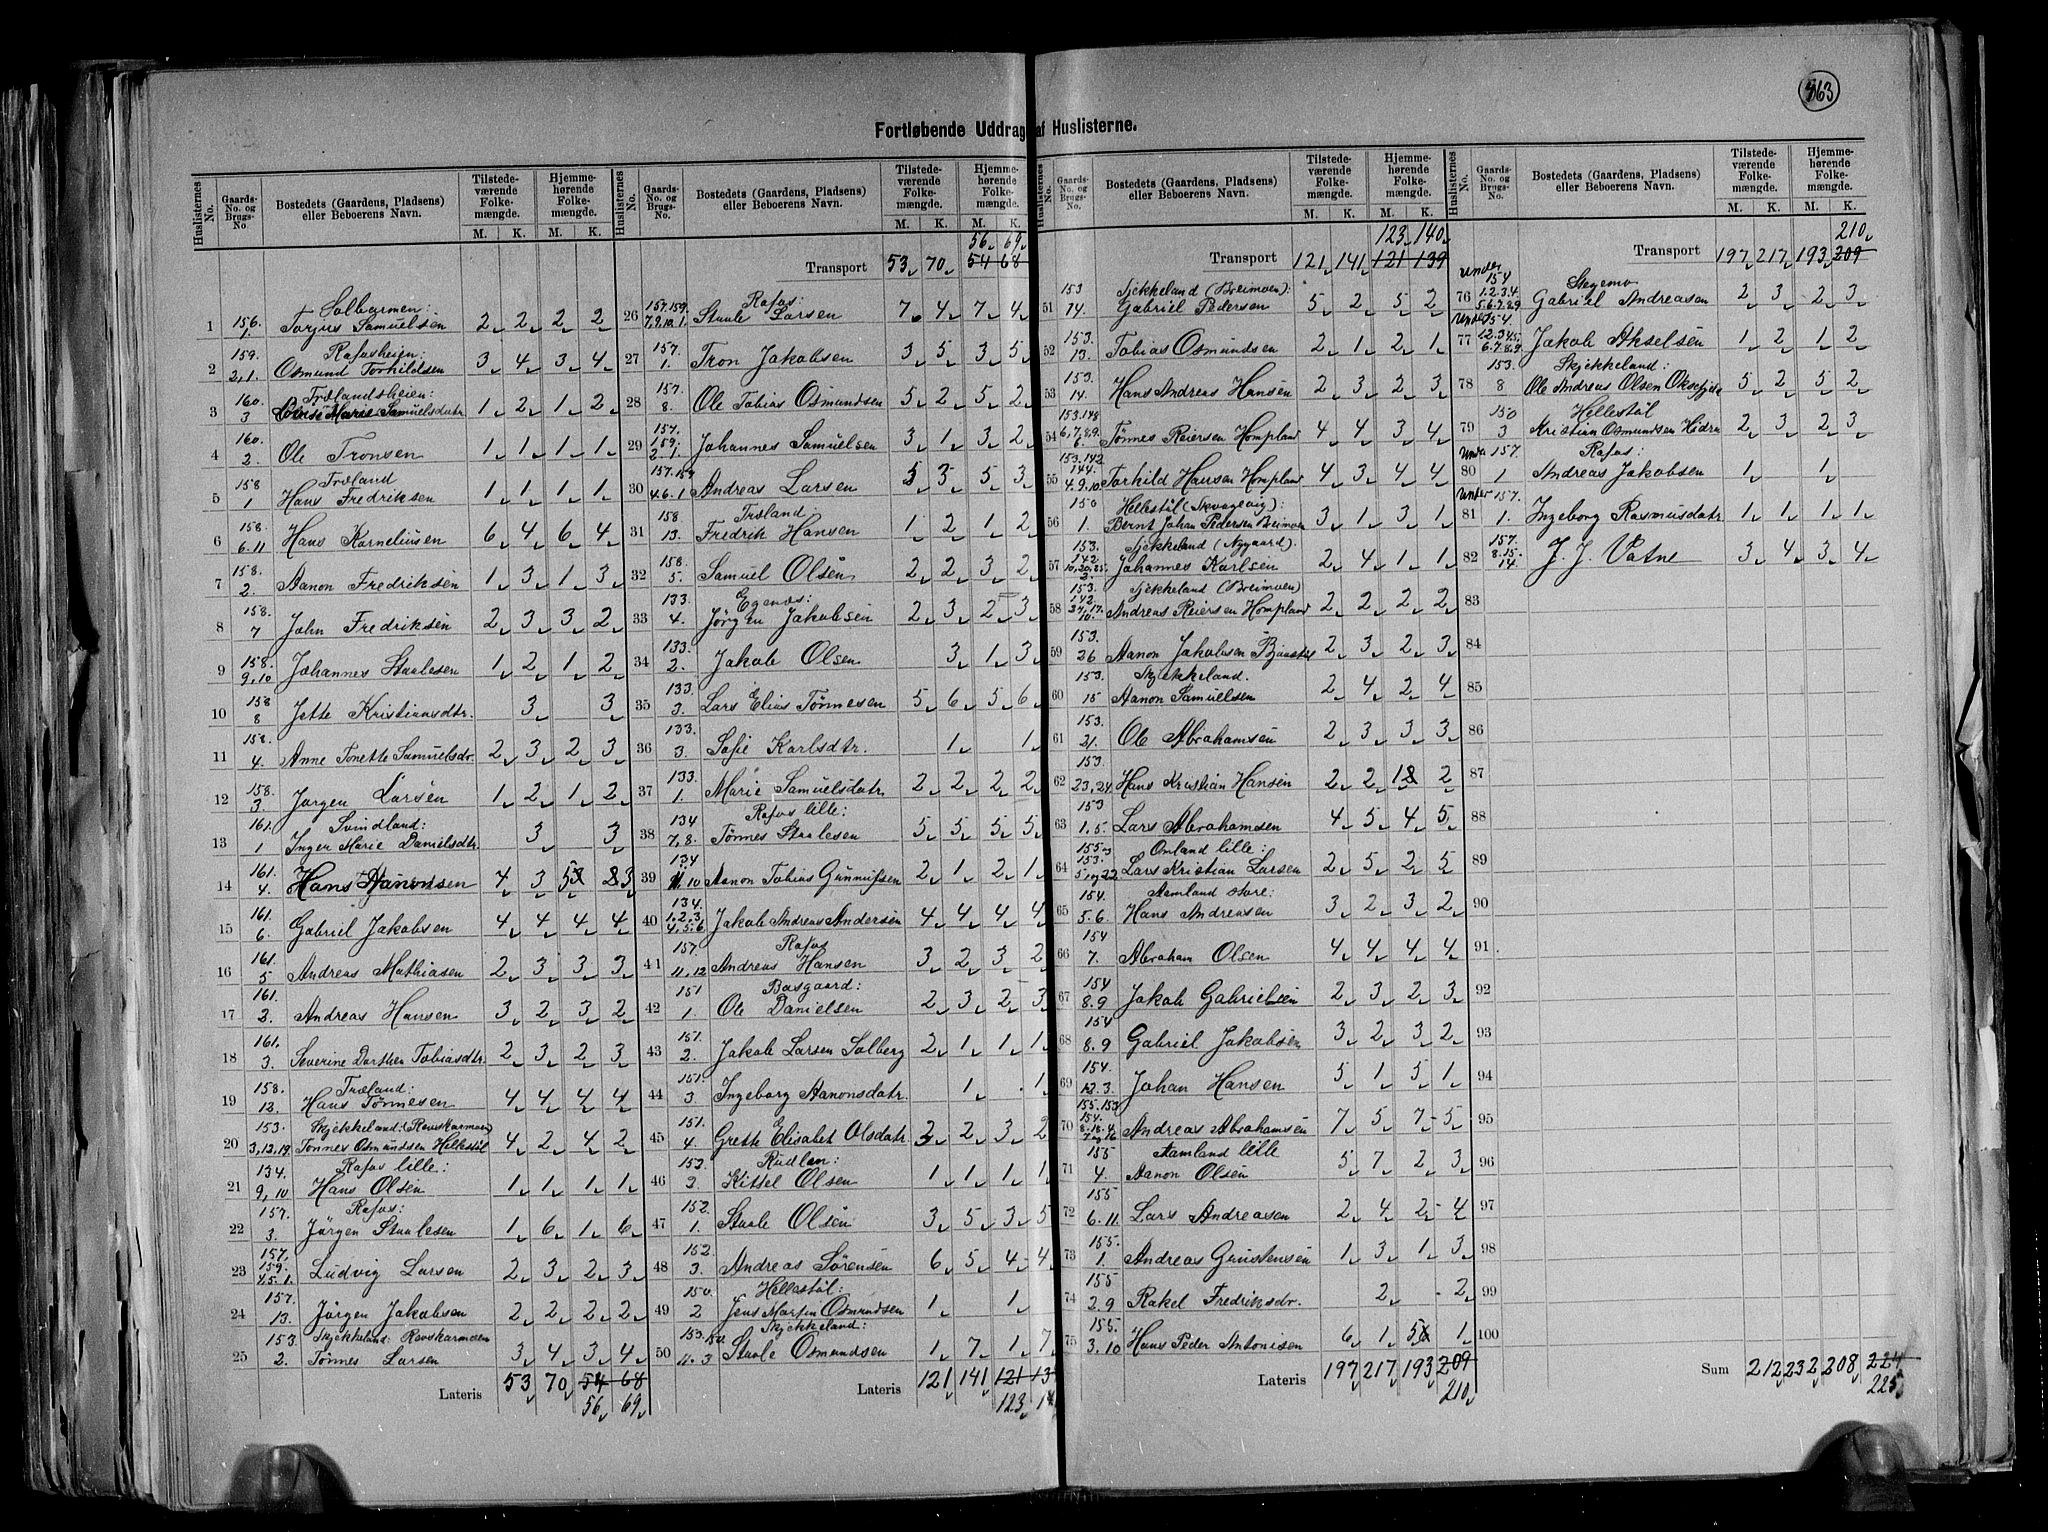 563
Fortløbende Uddrag af Huslisterne.
Huslisternes No. Gaards-No. og Brugs-No. Bostedets (Gaardens, Pladsens) eller Beboerens Navn. Tilstedeværende Folkemængde. M. K. Hjemmehørende Folkemængde. M. K.
Solbarmen:
1 156. 1. Torjus Samuelsen 2 2 2 2
Rafosheien:
2 159. 2,1. Osmund Torkildsen 3 4 3 4
Trælandsheien:
3 160. 3 Lovise Marie Samuelsdatr 1 2 1 2
4 160. 2. Ole Tronsen 1 1 1 1
Træland
5 158 1 Hans Fredriksen 1 1 1 1
6 158. 6.11 Hans Korneliusen 6 4 6 4
7 158. 2. Aanon Fredriksen 1 3 1 3
8 158. 7 John Fredriksen 2 3 3 2
9 158. 9,10 Johannes Staalesen 1 2 1 2
10 158 8 Jette Kristiansdtr. 3 3
11 158. 4. Anne Tonette Samuelsdr. 2 3 2 3
12 158. 3. Jørgen Larsen 1 2 1 2
Svindland:
13 161. 1 Inger Marie Danielsdtr. 3 3
14 161. 4. Hans Aanonsen 4 3 5 3
15 161. 6. Gabriel Jakobsen 4 4 4 4
16 161. 5 Andreas Mathiasen 2 3 3 3
17 161. 2. Andreas Hansen 3 2 3 2
18 161. 3. Severine Dorthea Tobiasdtr. 2 3 2 3
Træland:
19 158. 12. Hans Tønnesen 4 4 4 4
Skjekkeland: (Rovskarmoen)
20 153. 3,12,19. Tønnes Osmundsen Hellestøl 4 2 4 2
Rafos lille:
21 134. 9,10 Hans Olsen 1 1 1 1
Rafos:
22 157. 3. Jørgen Staalesen 1 6 1 6
23 157. 159. 4.5.1. Ludvig Larsen 2 3 2 3
24 157. 13. Jørgen Jakobsen 2 2 2 2
Skjekkeland: Rovskarmoen
25 153 2. Tønnes Larsen 3 4 3 4
Lateris 53 70 54 68
56 69
Huslisternes No. Gaards-No. og Brugs-No. Bostedets (Gaardens, Pladsens) eller Beboerens Navn. Tilstedeværende Folkemængde. M. K. Hjemmehørende Folkemængde. M. K.
56 69
Transport 53 70 54 68
Rafos:
26 157.159. 7,9,10.1. Staale Larsen 7 4 7 4
27 157. 1. Tron Jakobsen 3 5 3 5
28 157. 8. Ole Tobias Osmundsen 5 2 5 2
29 157. 159. 2.1. Johannes Samuelsen 3 1 3 2
30 157.159 4.6.1 Andreas Larsen 5 3 5 3
Træland
31 158 13. Fredrik Hansen 1 2 1 2
32 158. 5. Samuel Olsen 2 2 3 2
Egenæs:
33 133. 4. Jörgen Jakobsen 2 3 2 3
34 133. 2. Jakob Olsen 3 1 3
35 133. 3. Lars Elias Tønnesen 5 6 5 6
36 133. 3 Sofie Karlsdtr. 1 1
37 133. 1. Marie Samuelsdatr 2 2 2 2
Rafos lille:
38 134 7,8. Tønnes Staalesen 5 5 5 5
39 134 11.10 Aanon Tobias Gunnufsen 2 1 2 1
40 134. 1.2.3. 4.5.6 Jakob Andreas Andersen 4 4 4 4
Rafos
41 157. 11.12 Andreas Hansen 3 2 3 2
Basgaard:
42 151 1. Ole Danielsen 2 3 2 3
43 151. 2. Jakob Larsen Solberg 2 1 1 1
44 151. 3 Ingeborg Aanonsdatr. 1 1
45 151. 4. Grethe Elisabet Olsdatr. 3 2 3 2
Rudlen:
46 152. 2. Kittel Olsen 1 1 1 1
47 152. 1. Staale Olsen 3 5 3 5
48 152. 3. Andreas Sörensen 6 5 4 4
Hellestøl:
49 150. 2 Jens Martin Osmundsen 1 1
Skjekkeland:
50 153. 150. 11. 3 Staale Osmundsen 1 7 1 7
Lateris 121 141 121 13
123 14
Huslisternes No. Gaards-No. og Brugs-No. Bostedets (Gaardens, Pladsens) eller Beboerens Navn. Tilstedeværende Folkemængde. M. K. Hjemmehørende Folkemængde. M. K.
123 140
Transport 121 141 121 139
Sjekkeland (Breimoen):
51 153 14. Gabriel Pedersen 5 2 5 2
52 153. 13. Tobias Osmundsen 2 1 2 1
53 153. 14. Hans Andreas Hansen 2 3 2 3
54 153.148 6,7,8,9. 6. Tønnes Reiersen Hompland 4 4 3 4
55 153.142 144. 4.9.10. Torkild Hansen Hompland 4 3 4 4
Hellestöl (Skvagevig):
56 150 1. Bernt Johan Pedersen Breimoen 3 1 3 1
Sjekkeland (Nygaard).
57 153. 142. 10,20,25. 2. Johannes Karlsen 2 4 1 1
Sjekkeland (Breimoen)
58 153. 142 Andreas Reiersen Hompland 2 2 2 2
59 153. 26 Aanon Jakobsen 2 3 2 3
Skjekkeland.
60 153. 15 Aanon Samuelsen 2 4 2 4
61 153. 21. Ole Abrahamsen 2 3 3 3
62 153 23,24. Hans Kristian Hansen 2 2 1 2
63 153 1.5. Lars Abrahamsen 4 5 4 5
Omland lille:
64 155 153. 5,1 og 22 Lars Kristian Larsen 2 5 2 5
Aamland store:
65 154. 5.6. Hans Andreasen 3 2 3 2
66 154 7. Abraham Olsen 4 4 4 4
67 154 8.9 Jakob Gabrielsen 2 3 2 3
68 154 8.9 Gabriel Jakobsen 3 2 3 2
69 154. 12.3. Johan Hansen 5 1 5 1
70 155.153 154. 8.18.4. 7 og 16 Andreas Abrahamsen 7 5 7 5
Aamland lille
71 155 4. Aanon Olsen 5 7 2 3
72 155 6.11. Lars Andreasen 2 4 2 4
73 155. 1. Andreas Gunstensen 1 3 1 3
74 155 2.9 Rakel Fredriksdr. 2 2
75 155. 3.10 Hans Peder Antonisen 6 1 5 1
Lateris 197 217 193 209
210
Huslisternes No. Gaards-No. og Brugs-No. Bostedets (Gaardens, Pladsens) eller Beboerens Navn. Tilstedeværende Folkemængde. M. K. Hjemmehørende Folkemængde. M. K.
210
Transport 197 217 193 209
Stegemo
76 under 154 1.2.3.4. 5.6.7.8.9. Gabriel Andreasen 2 3 2 3
77 under 154. 1.2.3.4.5. 6.7.8.9. Jakob Akselsen 1 2 1 2
Skjekkeland.
78 153. 8 Ole Andreas Olsen Oksefjeld 5 2 5 2
Hellestøl
79 150 3 Kristian Osmundsen Hidra 2 3 2 3
Rafos:
80 under 157. 1 Andreas Jakobsen 1 1
81 under 157. 1. Ingeborg Rasmusdatr 1 1 1 1
82 157. 8.15. 14. J. J. Vatne 3 4 3 4
83
84
85
86
87
88
89
90
91
92
93
94
95
96
97
98
99
100
Sum 212 232 208 224
225